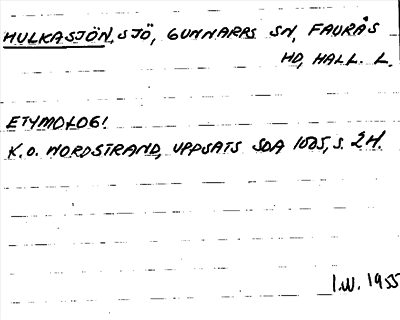 HULKASJÖN, SJÖ, GUNNARPS SN, FAURÅS
HD, HALL. L.
ETYMOLOGI
K.O. NORDSTRAND, UPPSATS SOA 1005, S. 24.
I.W. 1955